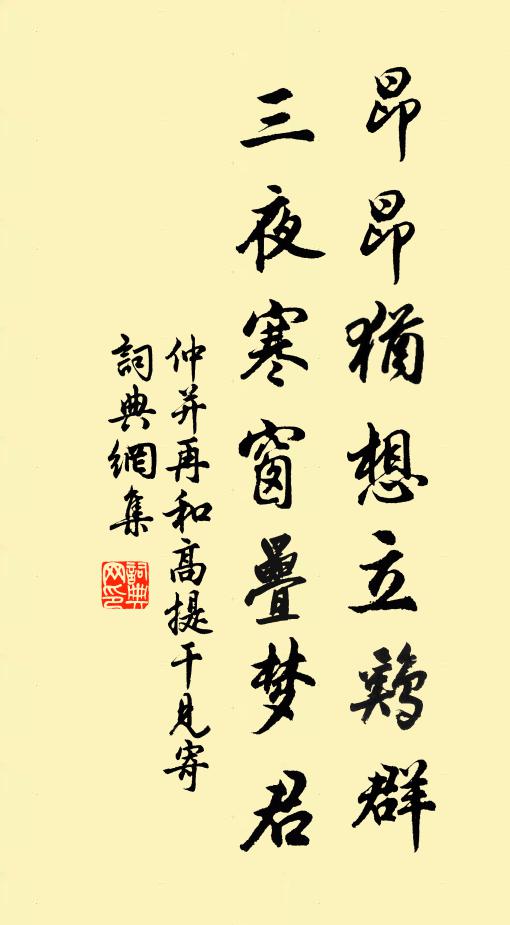 昂昂猶想立鷄群
三夜寒窗疊梦君
仲并再和高提干見寄
詞典網集
詞典网印